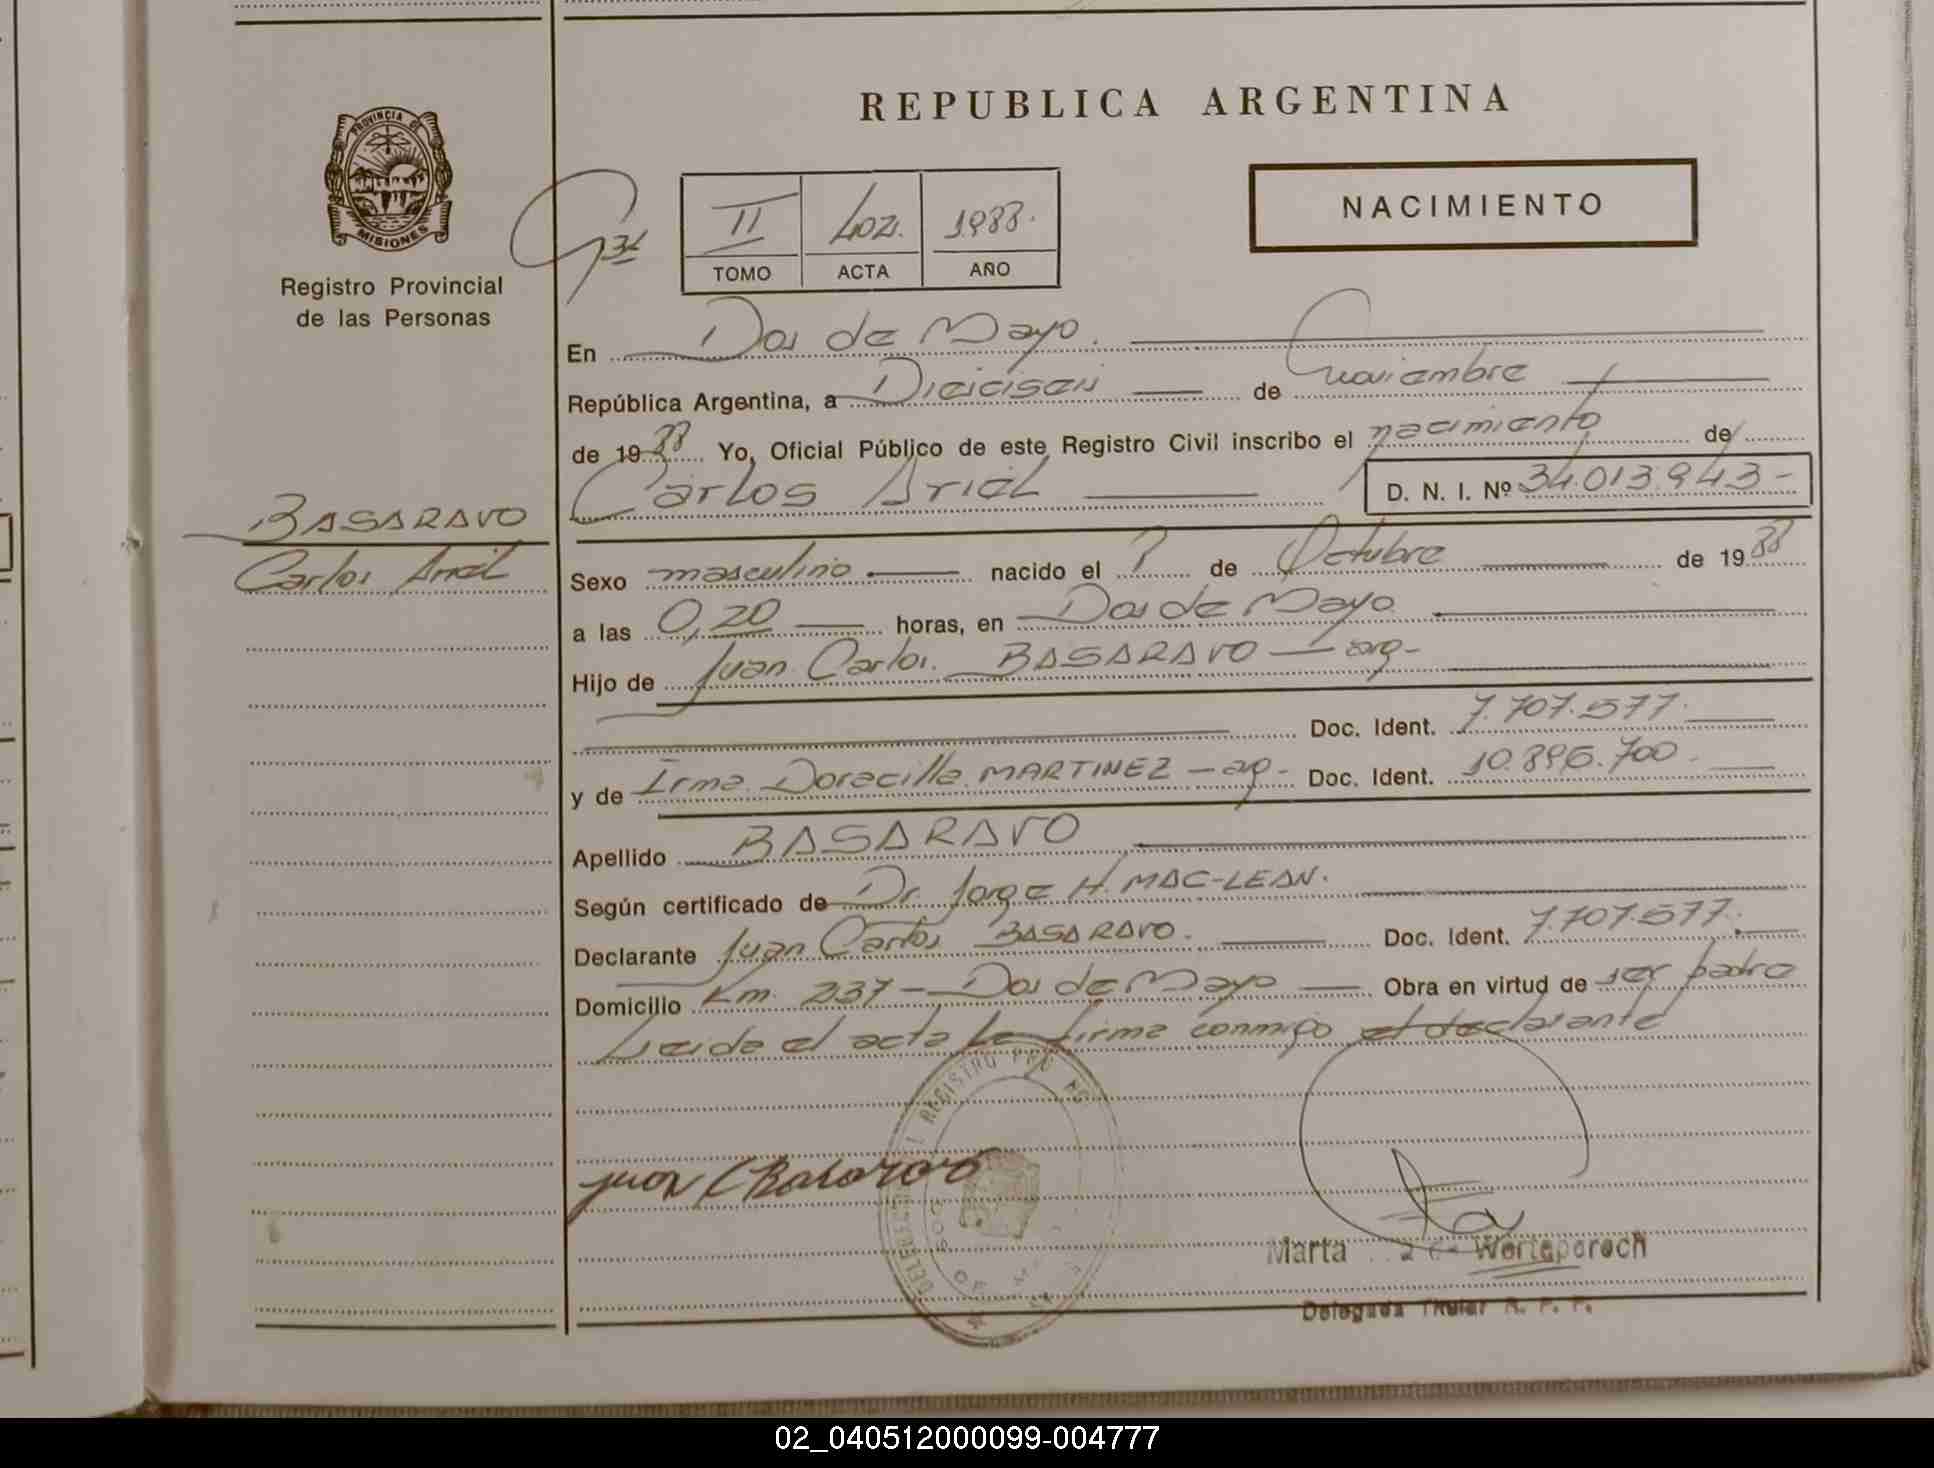 REPUBLICA ARGENTINA
PROVINCIA DE
MISIONES
Registro Provincial
de las Personas
II 402. 1988.
TOMO ACTA AÑO
NACIMIENTO
En Dos de Mayo.
República Argentina, a Dieciseis de Noviembre
de 1988 Yo, Oficial Público de este Registro Civil inscribo el nacimiento de
Carlos Ariel D. N. I. Nº 34.013.943-
BASARAVO
Carlos Ariel
Sexo masculino nacido el de Octubre de 1988
a las 0,20 horas, en Dos de Mayo
Hijo de Juan Carlos. BASARAVO - arg-
Doc. Ident. 7.707.577.
y de Irma Doracilla MARTINEZ - ag- Doc. Ident. 10.896.700.
Apellido BASARAVO
Según certificado de Dr. Jorge H. MAC-LEAN.
Declarante Juan Carlos BASARAVO. Doc. Ident. 7.707.577.
Domicilio Km. 237 - Dos de Mayo Obra en virtud de ser padre
Leida el acta la firma conmigo el declarante
REGISTRO
Juan C Basaravo
Marta
Delegada Titular R. P. P.
02_040512000099-004777